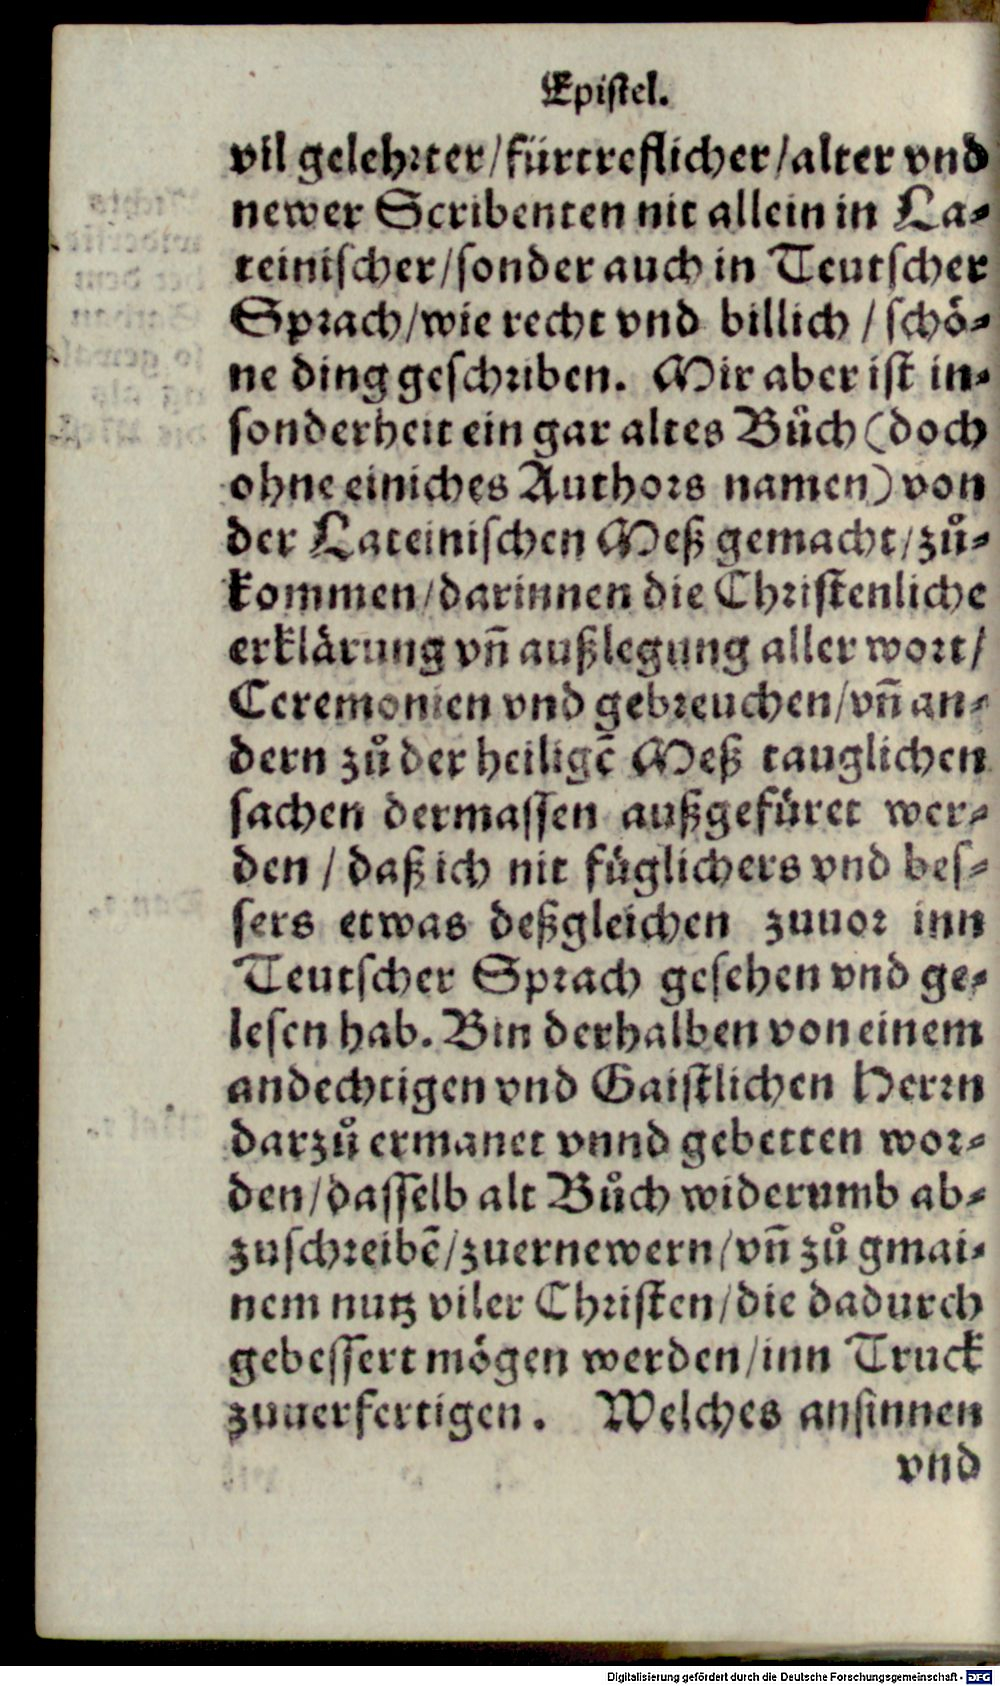 Epistel.
vil gelehrter/fürtreflicher/alter vnd
newer Scribenten nit allein in La⸗
teinischer/sonder auch in Teutscher
Sprach/wie recht vnd billich / schö⸗
ne ding geschriben. Mir aber ist in⸗
sonderheit ein gar altes Bůch (doch
ohne einiches Authors namen) von
der Lateinischen Meß gemacht/zů⸗
kommen/darinnen die Christenliche
erklärung vñ außlegung aller wort/
Ceremonien vnd gebreuchen/vñ an⸗
dern zů der heiligē Meß tauglichen
sachen dermassen außgefüret wer⸗
den / daß ich nit füglichers vnd bes⸗
sers etwas deßgleichen zuuor inn
Teutscher Sprach gesehen vnd ge⸗
lesen hab. Bin derhalben von einem
andechtigen vnd Gaistlichen Herrn
darzů ermanet vnnd gebetten wor⸗
den/dasselb alt Bůch widerumb ab⸗
zuschreibē/zuernewern/vñ zů gmai⸗
nem nutz viler Christen/die dadurch
gebessert mögen werden/inn Truck
zuuerfertigen. Welches ansinnen
vnd
Digitalisierung gefördert durch die Deutsche Forschungsgemeinschaft - DFG